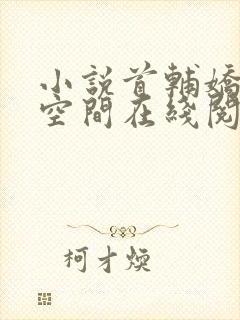 小説首輔嬌
空間在綫閱
柯才煐